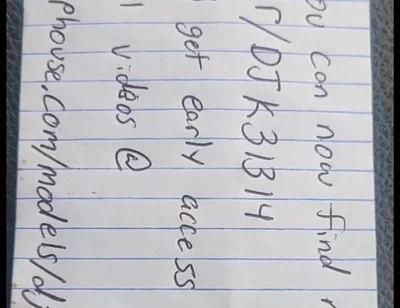 ou can now find
r/DJK31314
get early access
videos @
phouse.com/models/dj